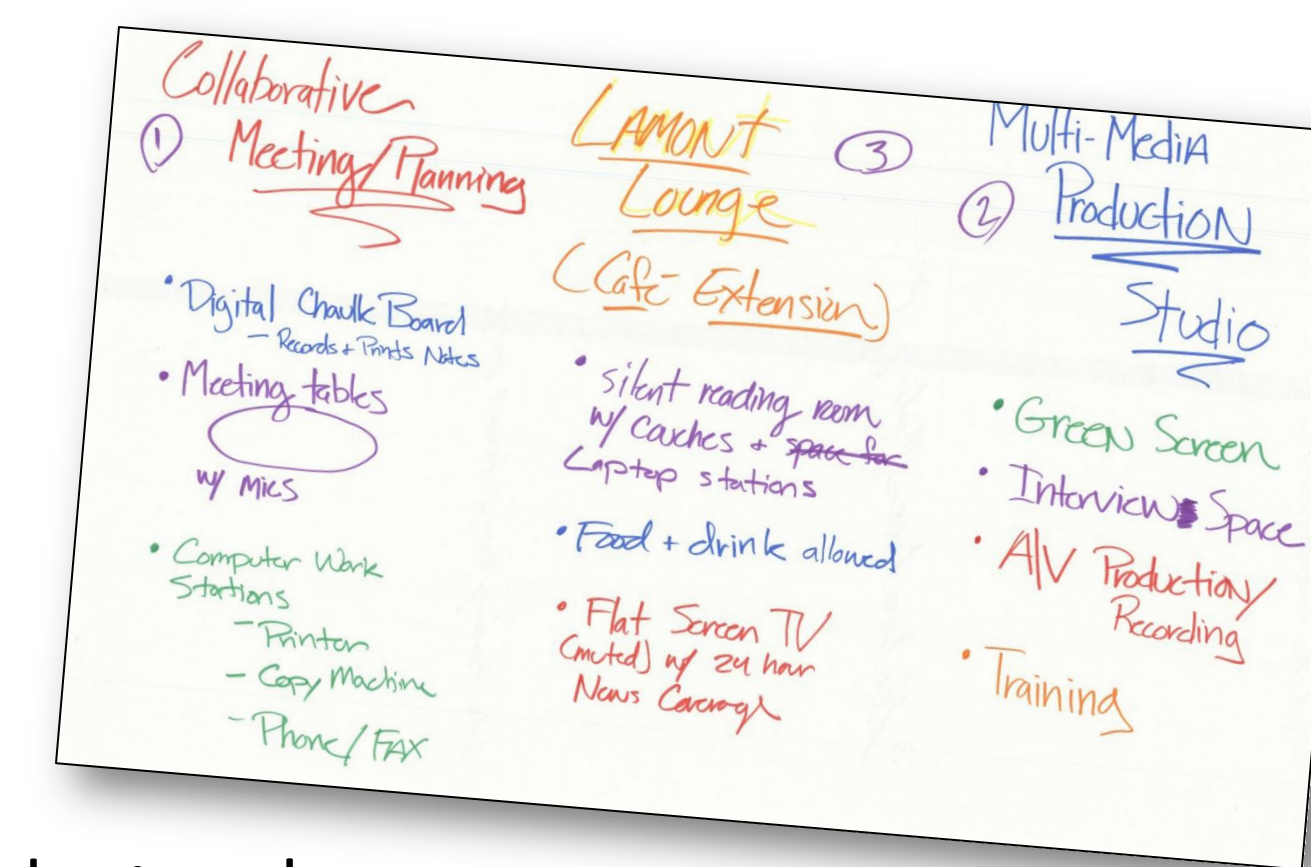 Collaborative
① Meeting/Planning
• Digital Chaulk Board
– Records + Prints Notes
• Meeting tables
w/ Mics
• Computer Work
Stations
– Printer
– Copy Machine
– Phone/FAX
LAMONT ③
Lounge
(Café Extension)
• silent reading room
w/ couches + space for
Laptop stations
• Food + drink allowed
• Flat Screen TV
(muted) w/ 24 hour
News Coverage
Multi-Media
② Production
Studio
• Green Screen
• Interview Space
• A/V Production/
Recording
• Training